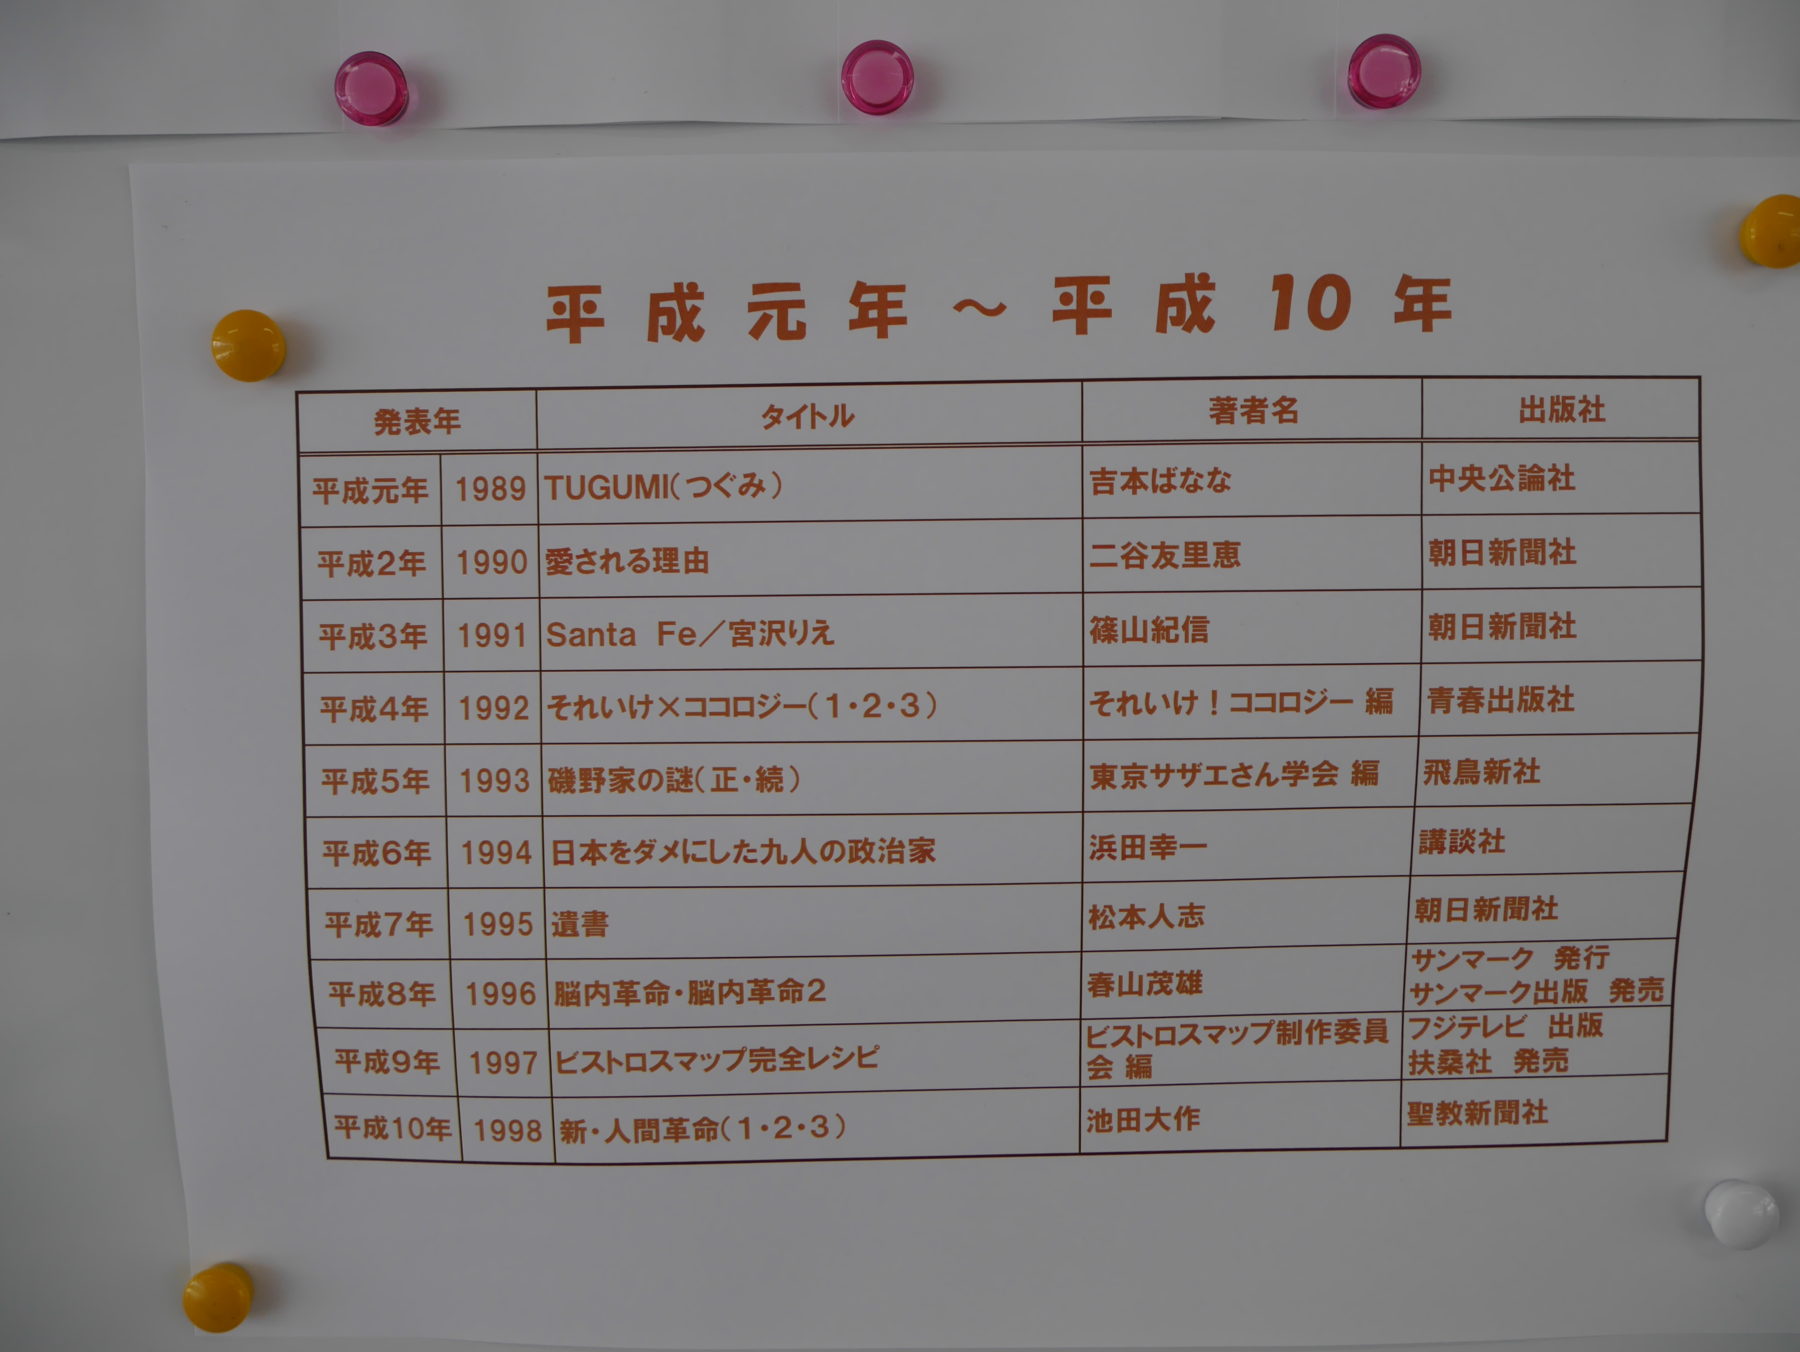 平成元年～平成10年
発表年 タイトル 著者名 出版社
平成元年 1989 TUGUMI(つぐみ) 吉本ばなな 中央公論社
平成2年 1990 愛される理由 二谷友里恵 朝日新聞社
平成3年 1991 Santa Fe／宮沢りえ 篠山紀信 朝日新聞社
平成4年 1992 それいけ×ココロジー(1・2・3) それいけ！ココロジー 編 青春出版社
平成5年 1993 磯野家の謎(正・続) 東京サザエさん学会 編 飛鳥新社
平成6年 1994 日本をダメにした九人の政治家 浜田幸一 講談社
平成7年 1995 遺書 松本人志 朝日新聞社
平成8年 1996 脳内革命・脳内革命2 春山茂雄 サンマーク 発行
サンマーク出版 発売
平成9年 1997 ビストロスマップ完全レシピ ビストロスマップ制作委員 フジテレビ 出版
会 編 扶桑社 発売
平成10年 1998 新・人間革命(1・2・3) 池田大作 聖教新聞社